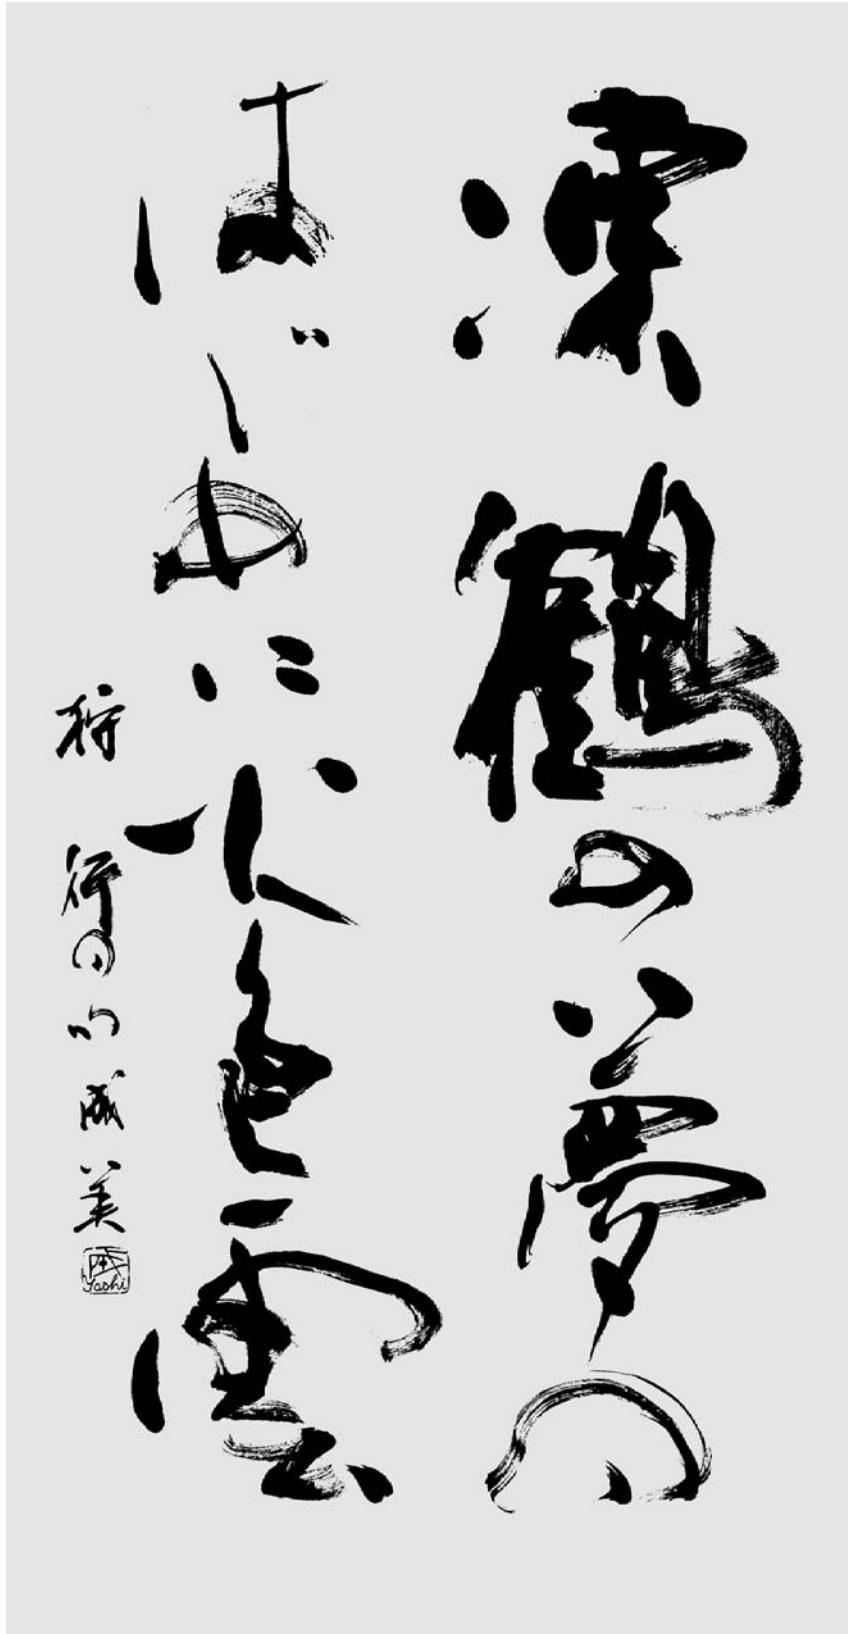 凍鶴の夢の
はじめに火色雲
狩行の句 成美
成
Yoshi